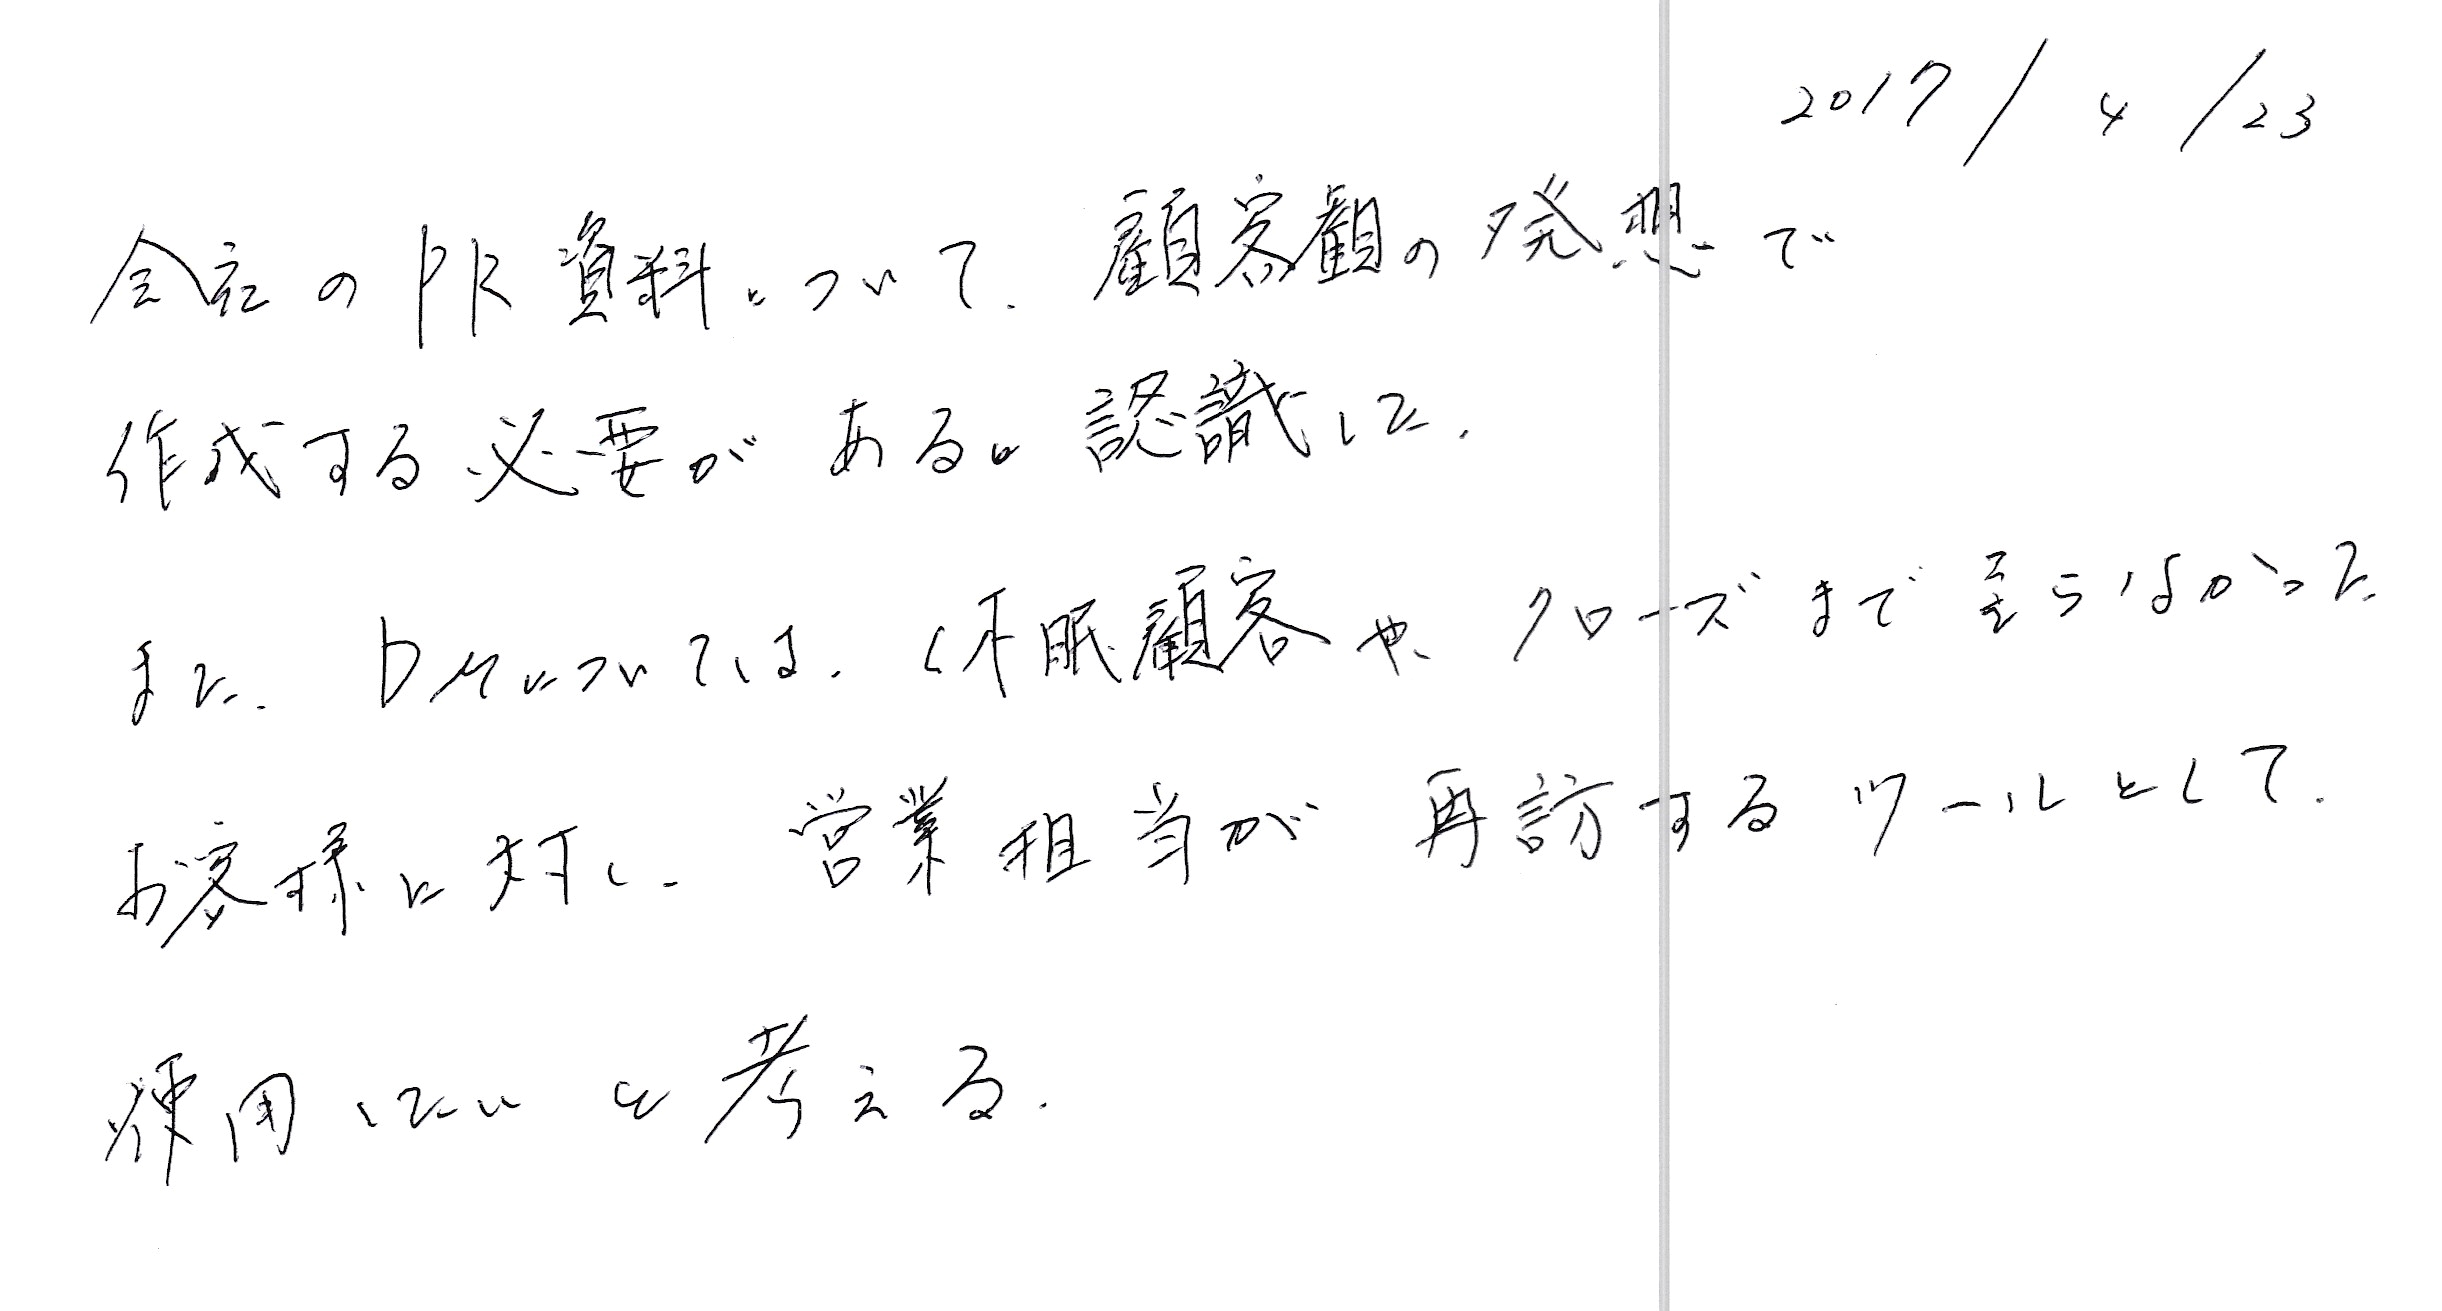 2017/4/23
会社のPR資料について、顧客観の発想で
作成する必要があると認識した。
また、DMについては、休眠顧客や、クローズまで至らなかった
お客様に対し、営業担当が再訪するツールとして、
使用したいと考える。